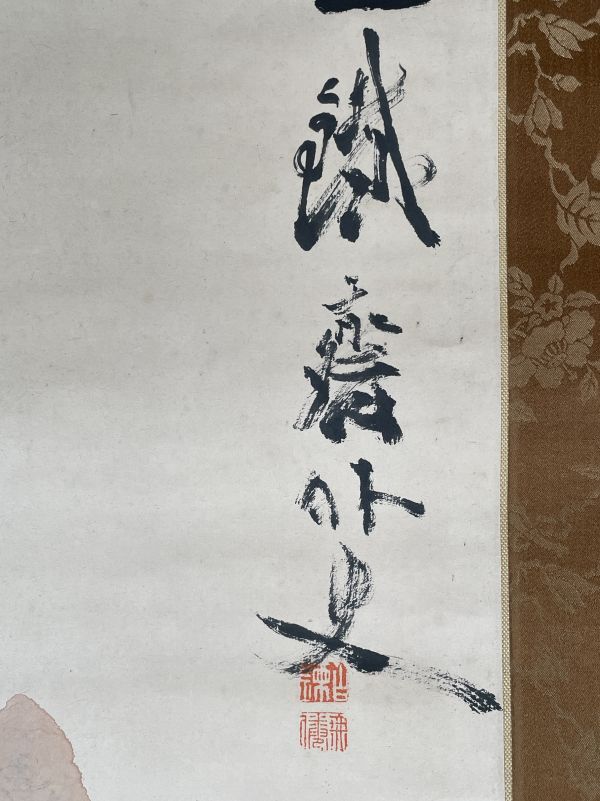 鐵齋外史